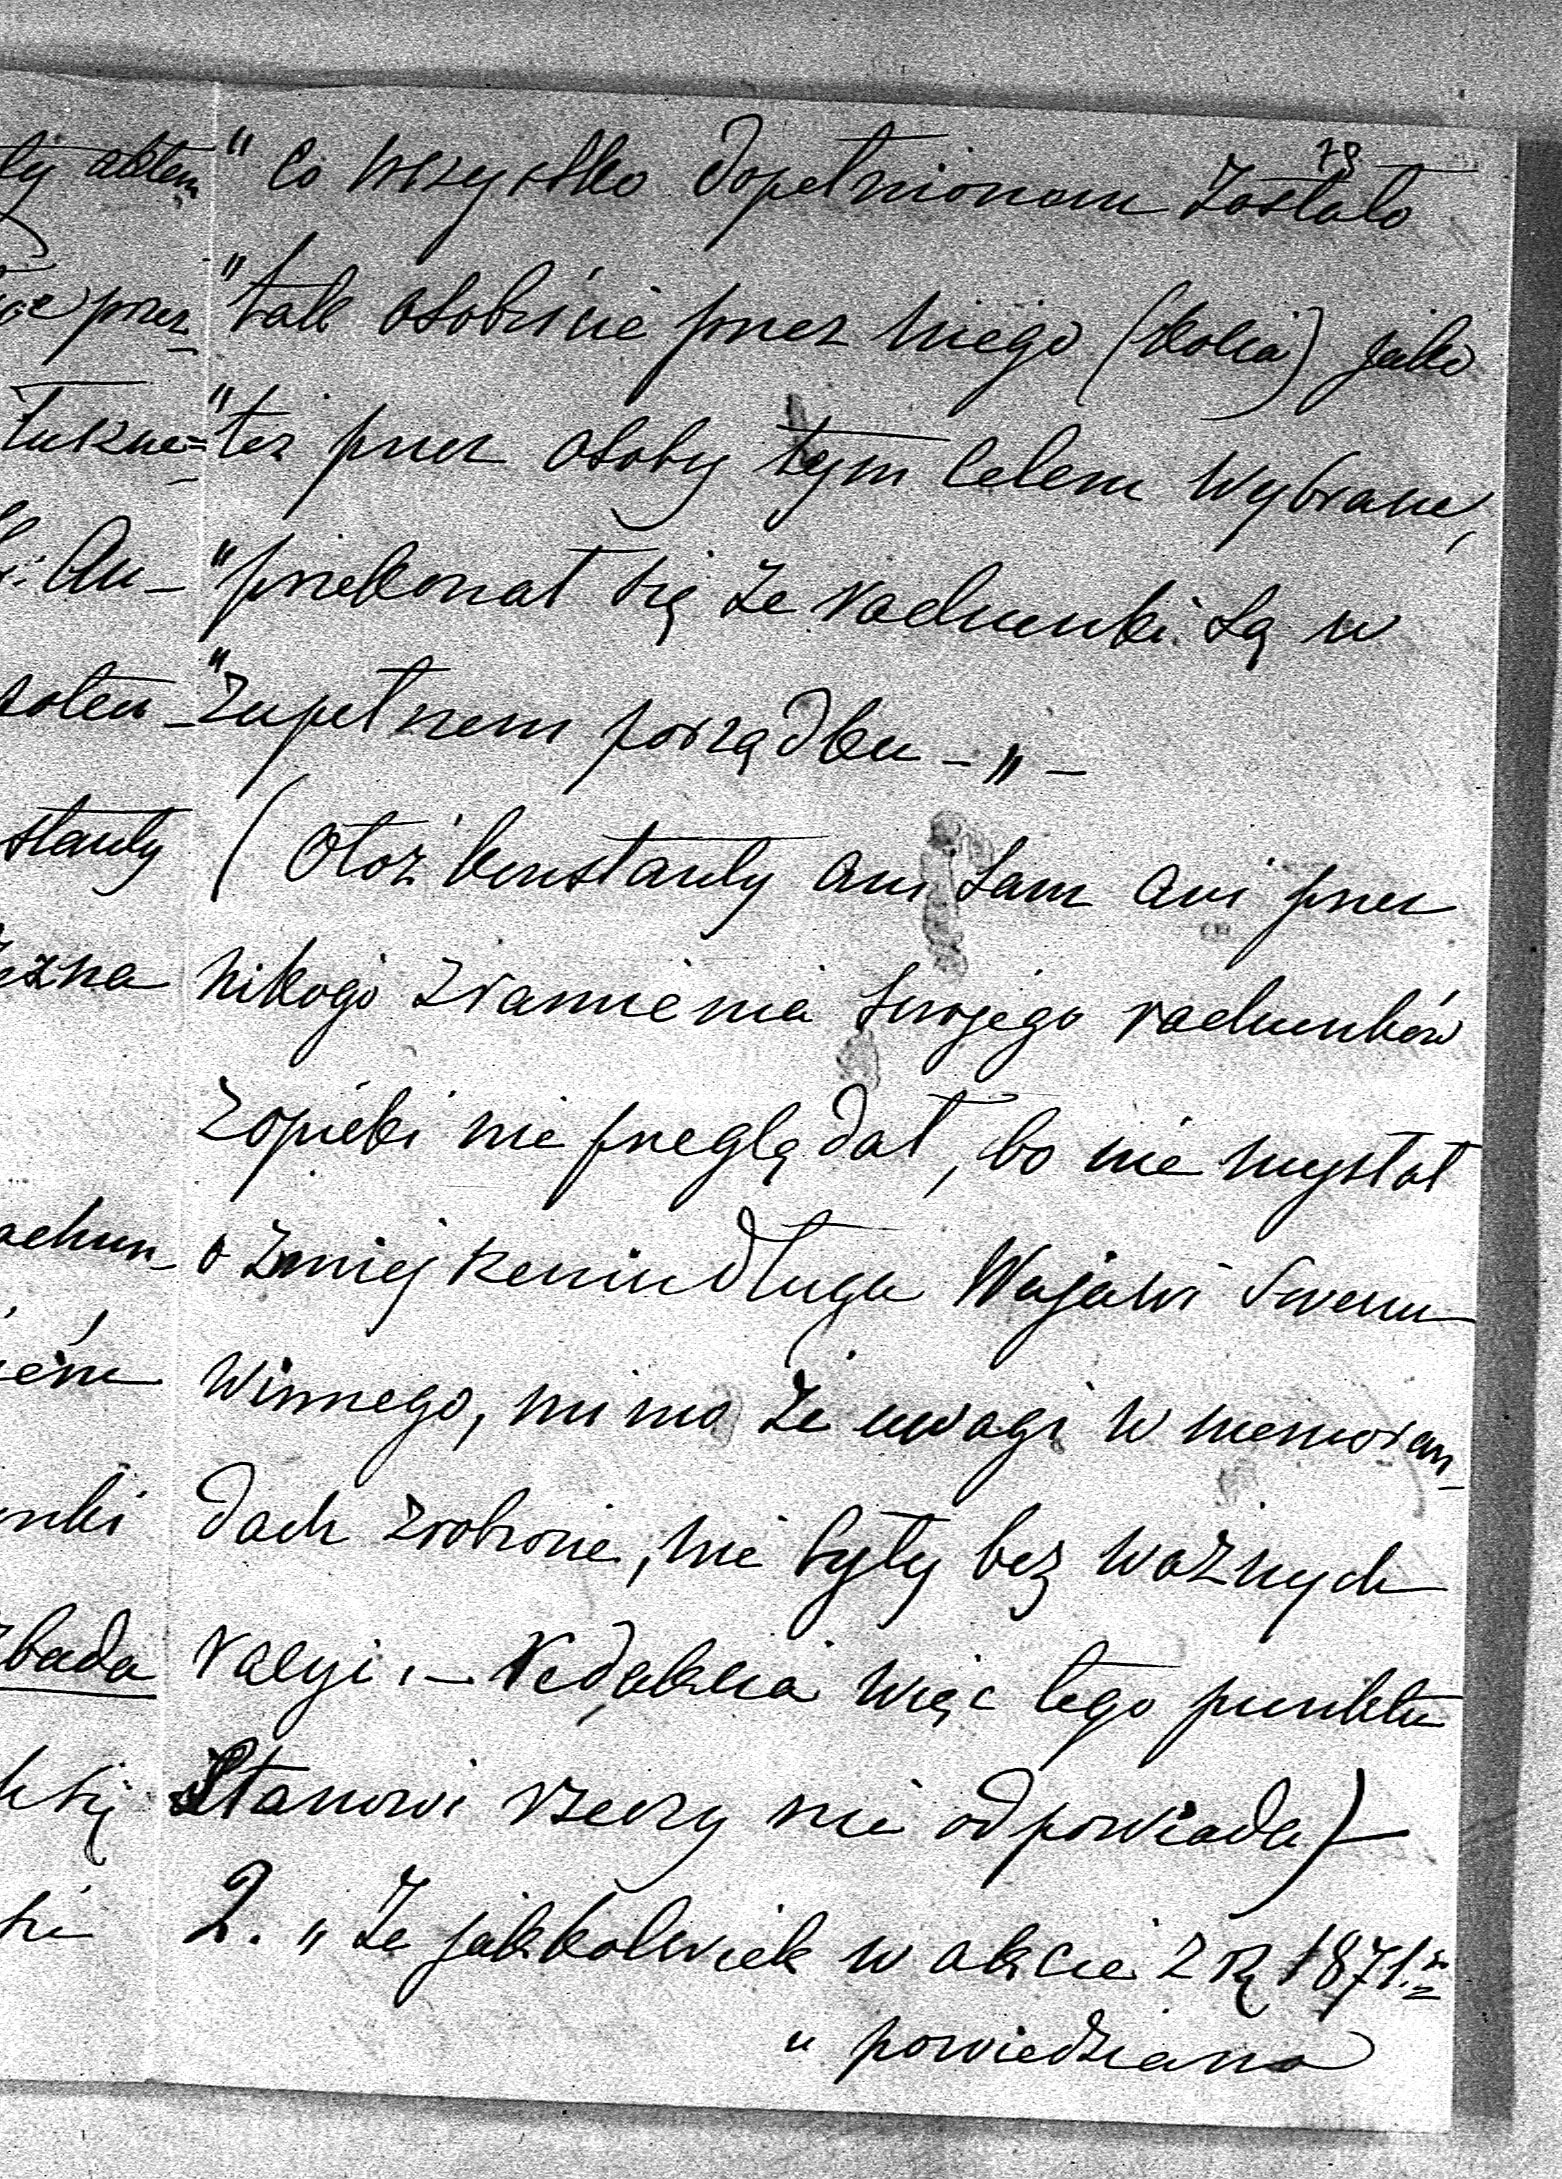 78
„Co wszystko dopełnionem zostało
„tak osobiście przez niego (Kocia) jako
„też przez osoby tym celem wybrane,
„przekonał się że rachunki są w
„zupełnem porządku – „ –
(Otóż Konstanty ani sam ani przez
nikogo z ramienia swojego rachunków
z opieki nie przeglądał, bo nie myślał
o zmiejszeniu długu Wujowi swemu
winnego, mimo że uwagi w memoran-
dach zrobione, nie były bez ważnych
racyi. – Redakcia więc tego punktu
Stanowi rzeczy nie odpowiada) –
2. „Że jakkolwiek w akcie z R 1871.
„ powiedziano
aktem
przez
stanty
achun-
nki
zbada
się